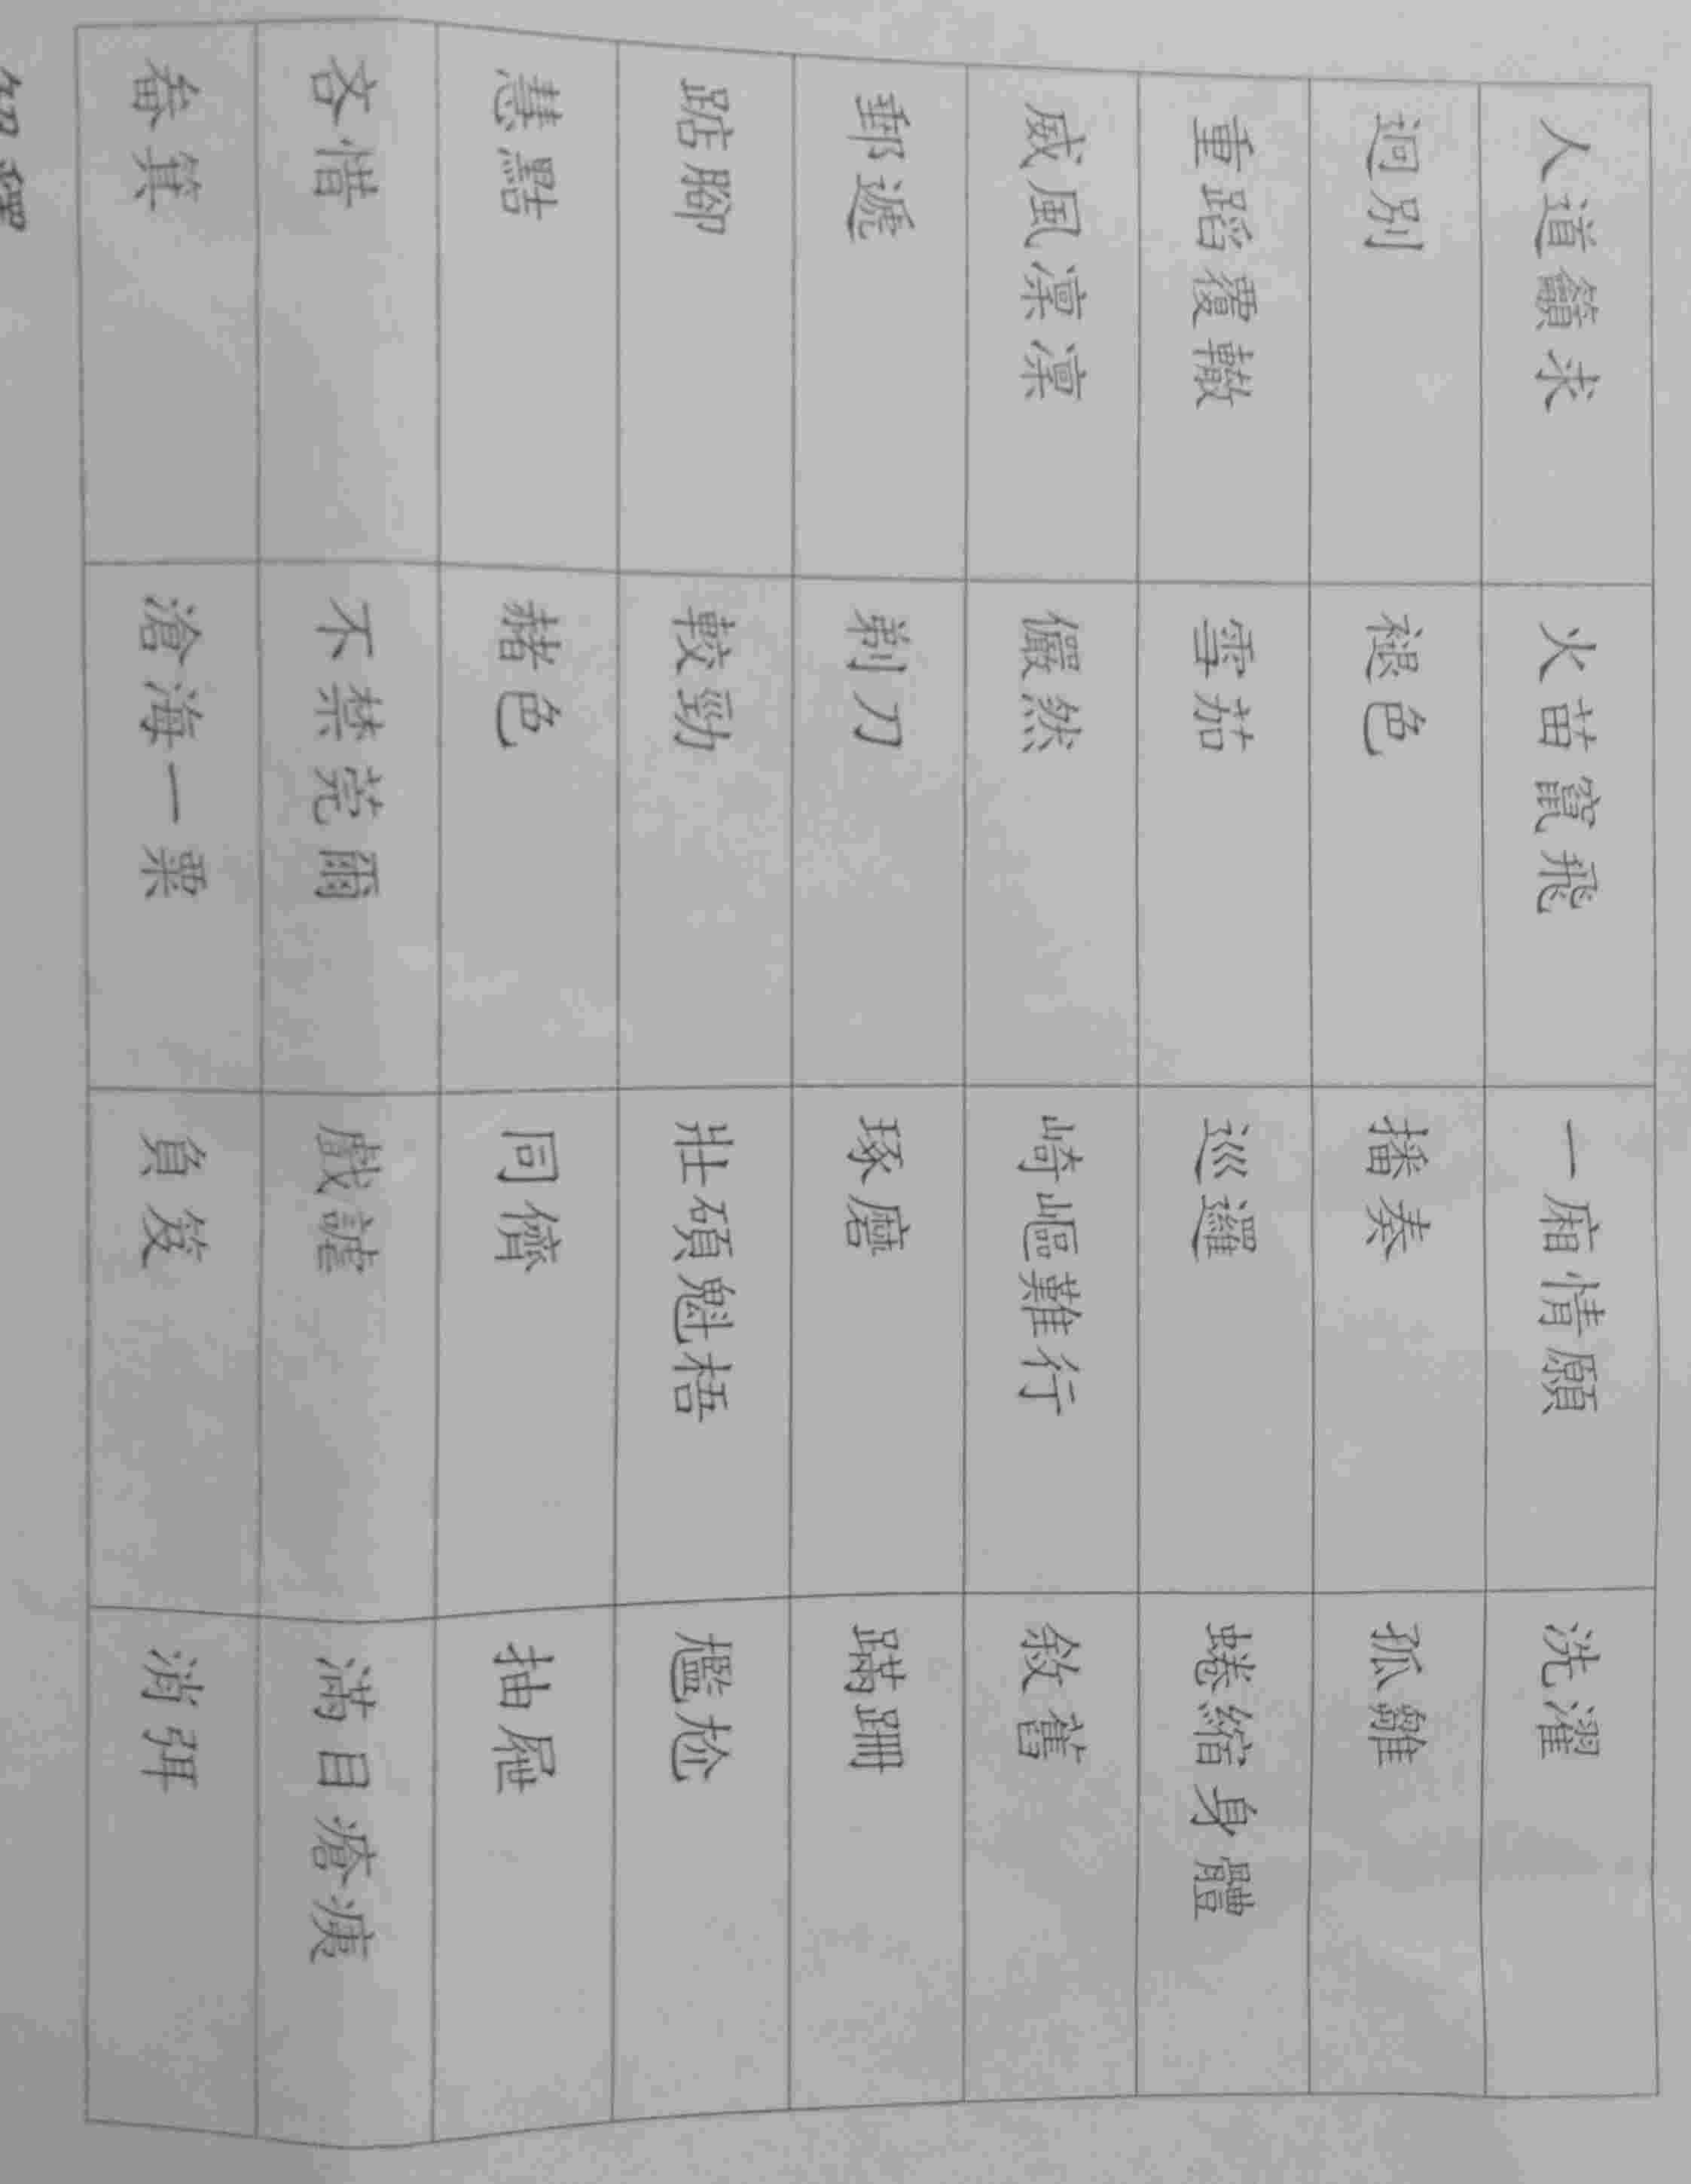 人道籲求 火苗竄飛 一廂情願 洗濯
迥別 褪色 播奏 孤雛
重蹈覆轍 雪茄 巡邏 蜷縮身體
威風凜凜 儼然 崎嶇難行 敘舊
郵遞 剃刀 琢磨 蹣跚
踮腳 較勁 壯碩魁梧 尷尬
慧黠 赭色 同儕 抽屜
吝惜 不禁莞爾 戲謔 滿目瘡痍
畚箕 滄海一粟 負笈 消弭